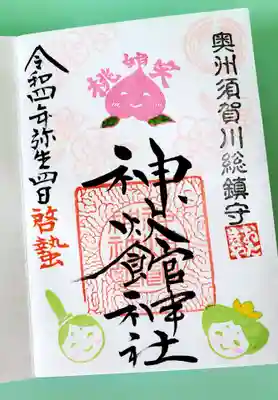 桃始笑
奥州須賀川総鎮守
神炊館神社
令和四年弥生四日 啓蟄